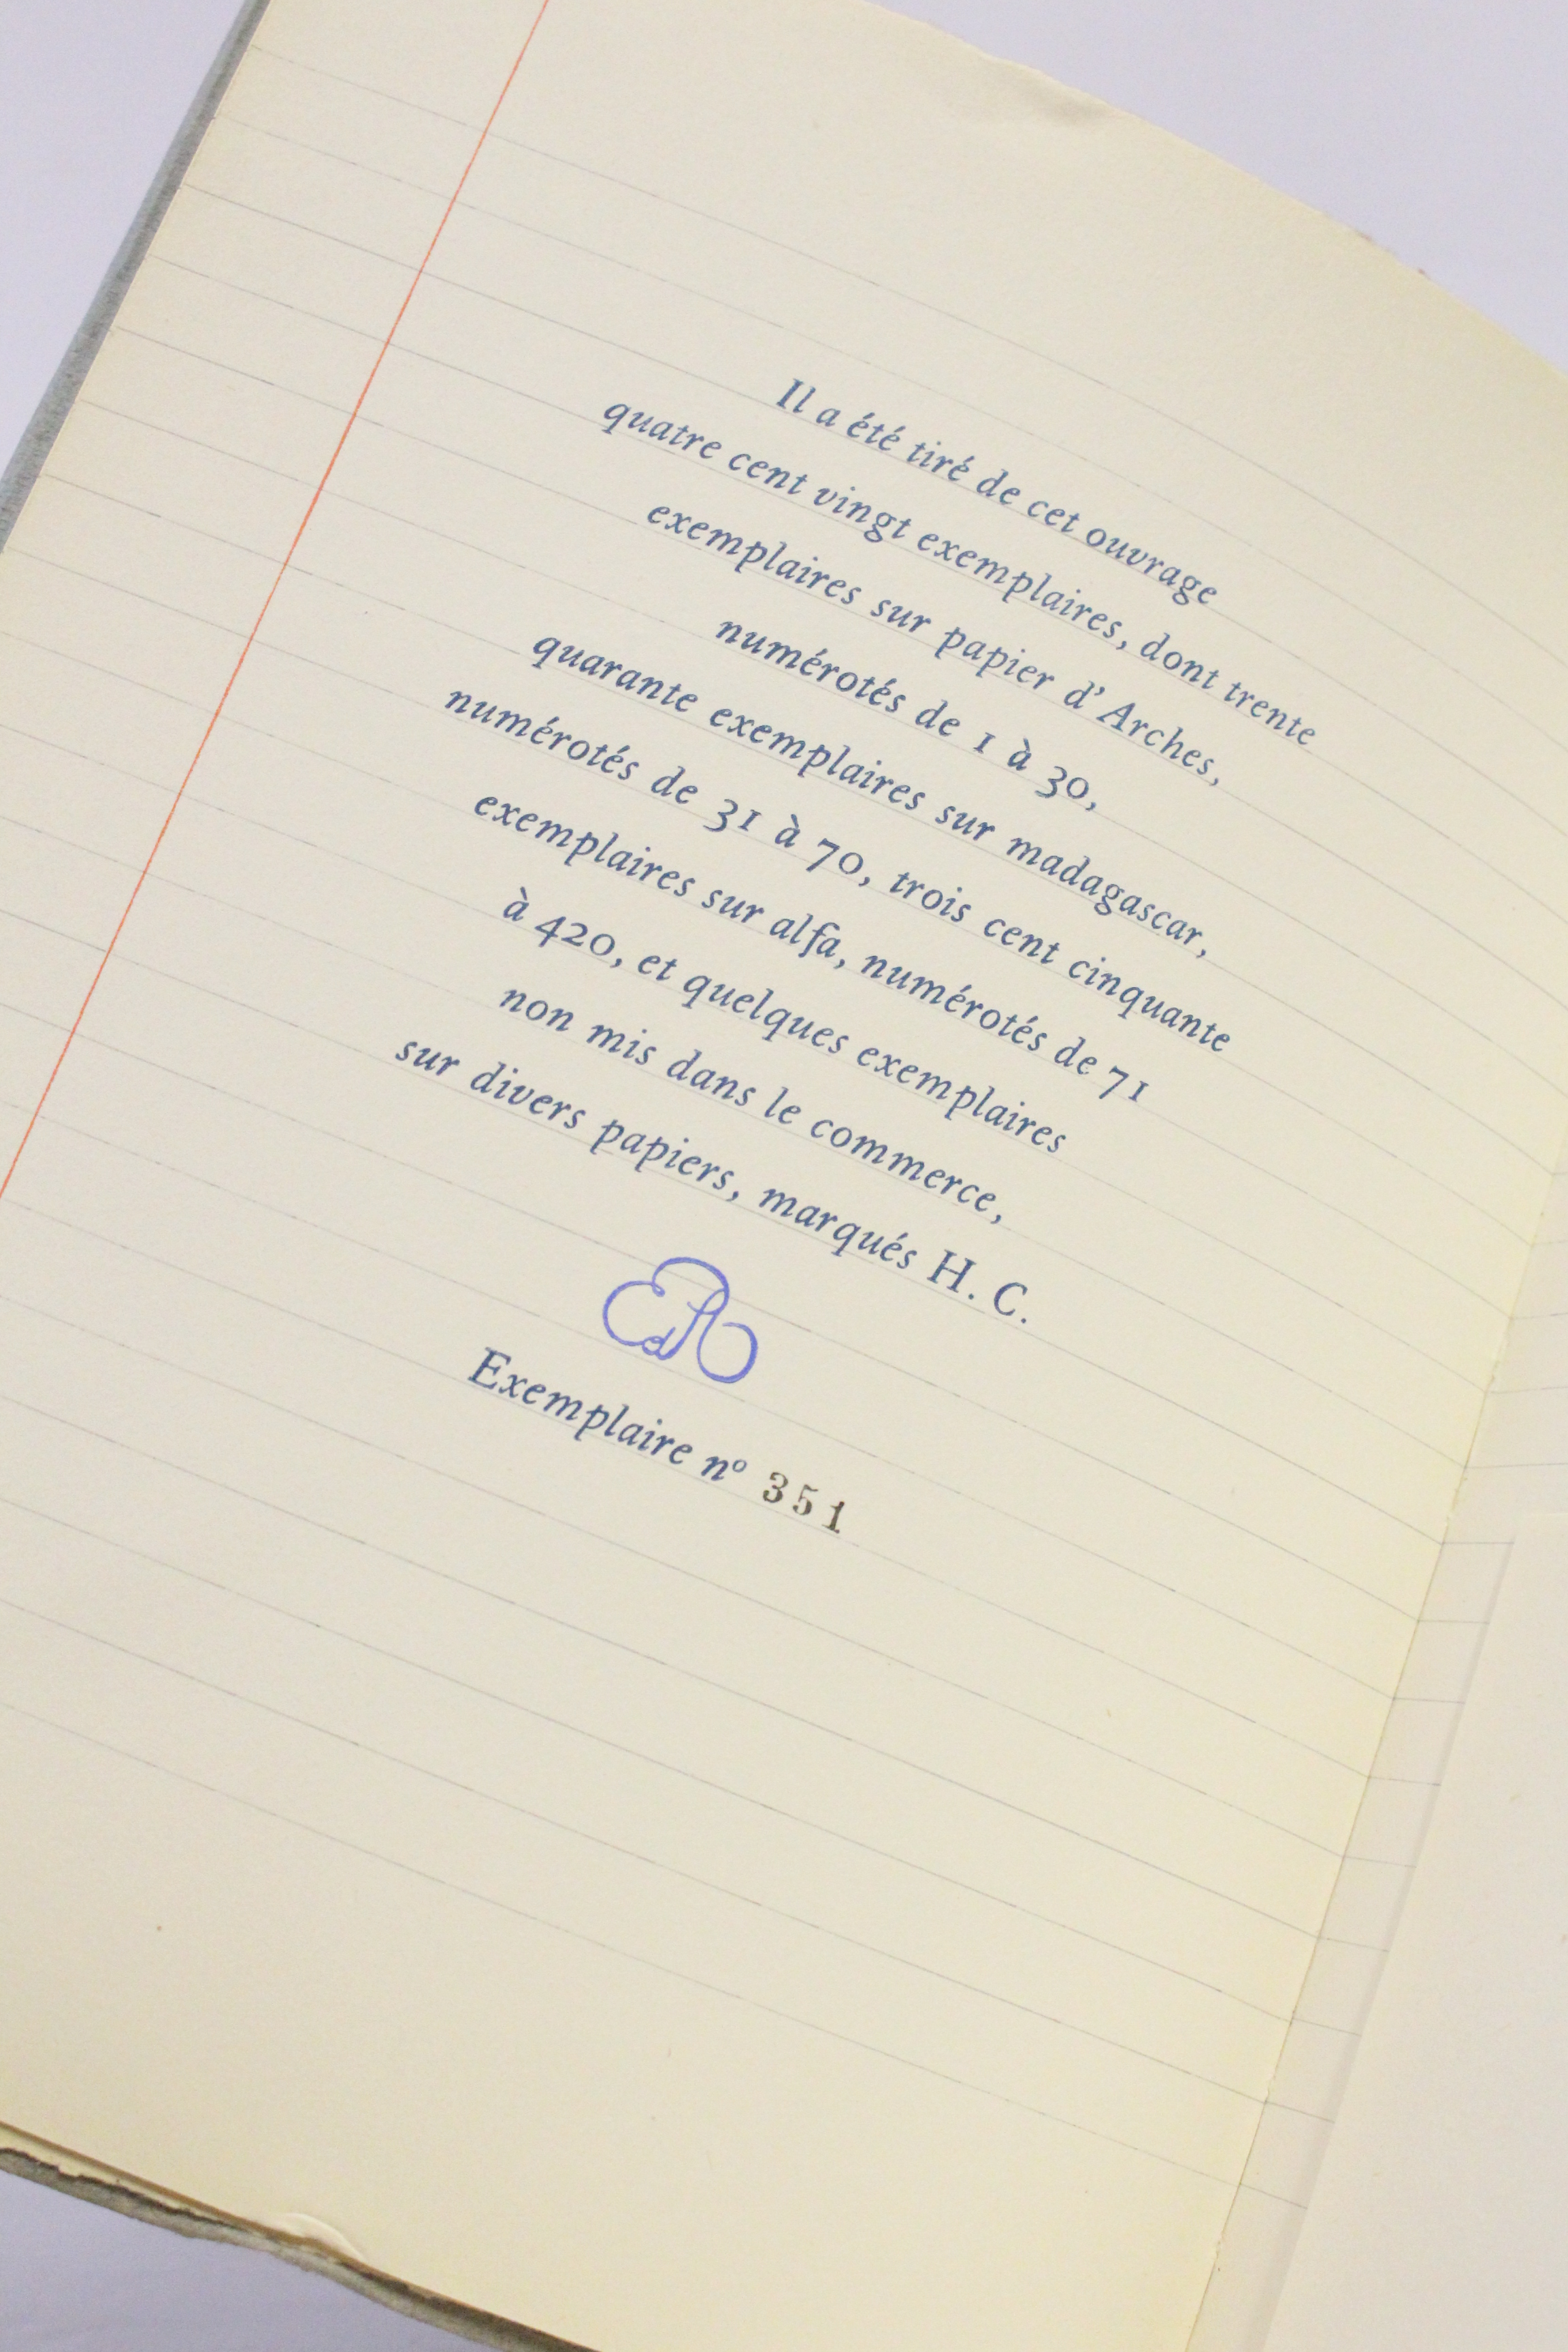 Il a été tiré de cet ouvrage
quatre cent vingt exemplaires, dont trente
exemplaires sur papier d'Arches,
numérotés de 1 à 30,
quarante exemplaires sur madagascar,
numérotés de 31 à 70, trois cent cinquante
exemplaires sur alfa, numérotés de 71
à 420, et quelques exemplaires
non mis dans le commerce,
sur divers papiers, marqués H. C.
Exemplaire nº 351